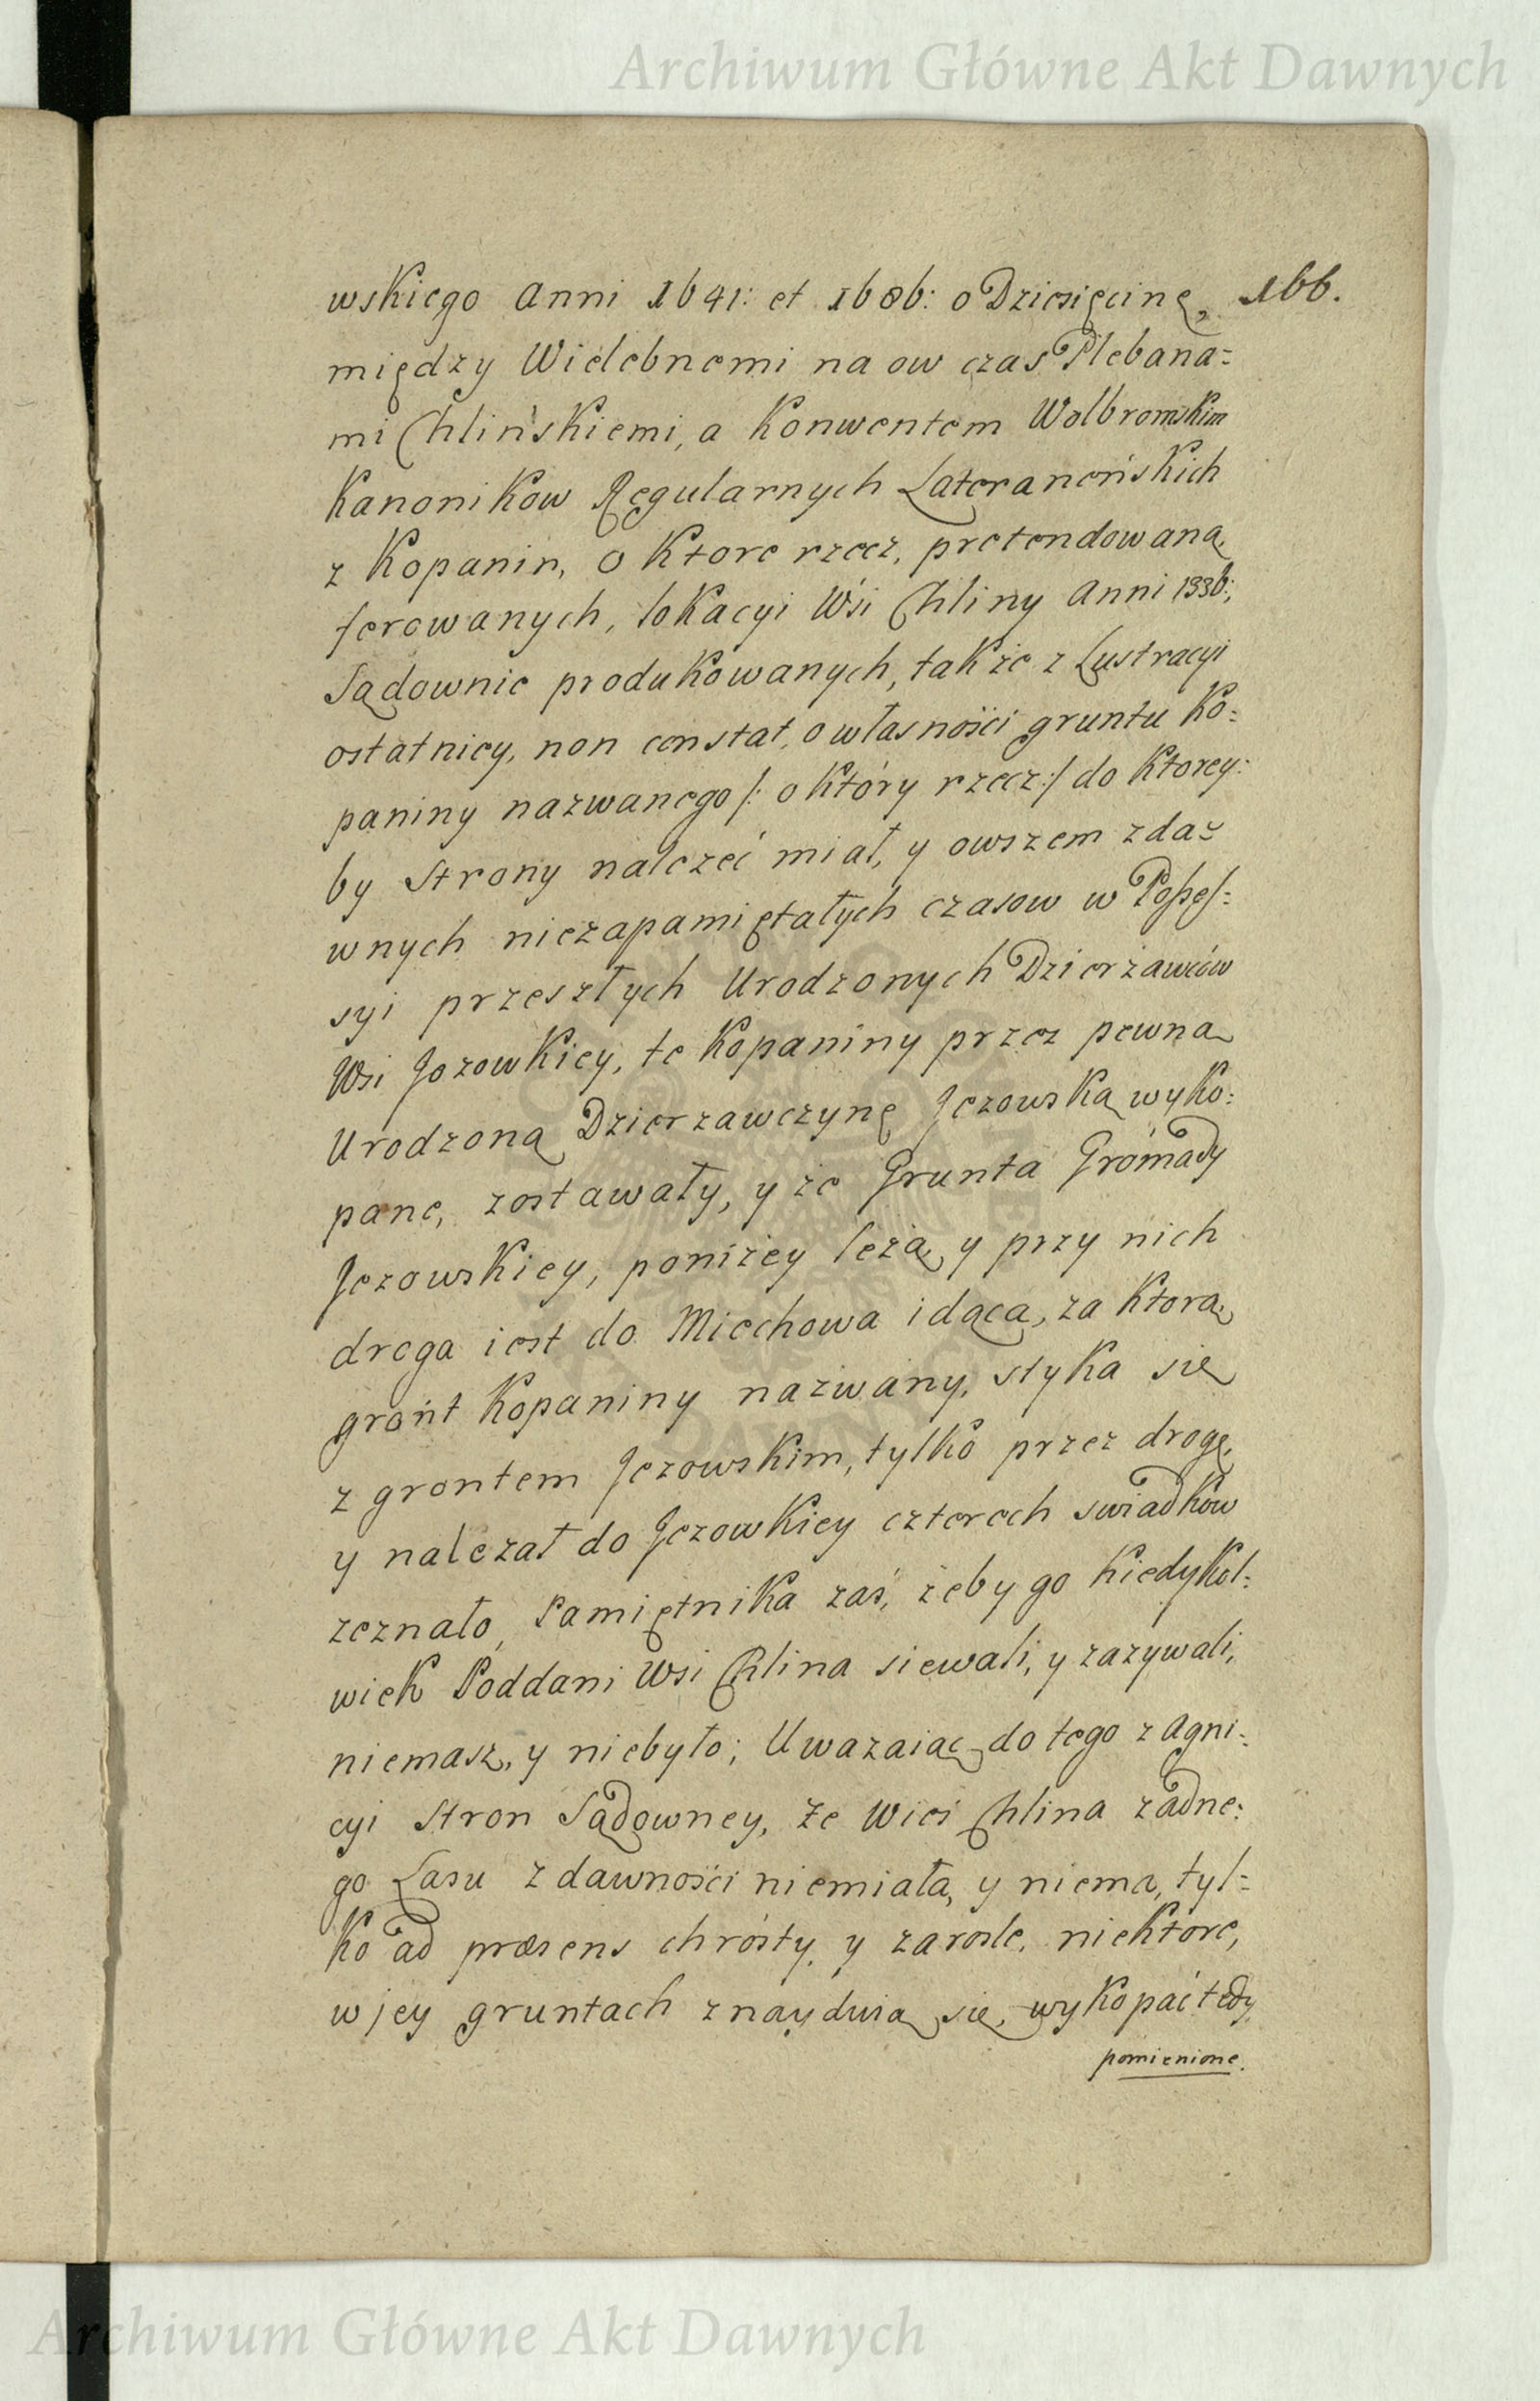 Archiwum Główne Akt Dawnych
166.
wskiego Anni 1641: et 1686: o Dziesięcinę,
między Wielebnemi na ow czas Plebana=
mi Chlińskiemi, a Konwentem Wolbromskim
Kanonikow Regularnych Lateraneńskich
z Kopanin, o Ktore rzecz, pretendowaną
ferowanych, lokacyi Wśi Chliny Anni 1336:,
Sądownie produkowanych, także z Lustracyi
ostatniey, non constat, o własności gruntu Ko=
paniny nazwanego /: o który rzecz:/ do Ktorey:
by Strony należeć miał, y owszem zda=
wnych niezapamiętałych czasow w Possess=
syi przeszłych Urodzonych Dzierżawców
Wsi Jezowkiey, te Kopaniny przez pewną
Urodzoną Dzierzawczynę Jezowską wyko:
pane, zostawały, y ze Grunta Gromady
Jezowskiey, poniżey leżą, y przy nich
droga iest do Miechowa idąca, za Ktorą
gront Kopaniny nazwany, styka się
z grontem Jezowskim, tylko przez drogę,
y należał do Jezowkiey czterech swiadków
zeznało, Pamiętnika zaś, żeby go Kiedykol:
wiek Poddani Wsi Chlina siewali, y zazywali,
niemasz, y niebyło; Uwazaiąc do tego z Agni:
cyi Stron Sądowney, że Wieś Chlina zadne:
go Lasu z dawności niemiała, y niema, tyl=
Ko ad præsens chrósty, y zarosle, niektore,
w jey gruntach znayduią się, wykopać tedy
pomienione.
Archiwum Główne Akt Dawnych